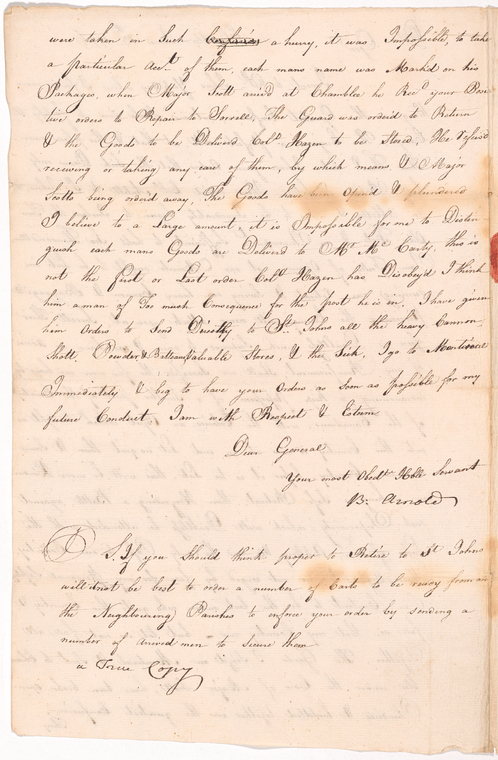 were taken in Such Confusion a hurry, it was Impossible, to take
a particular Acct of them, each mans name was Markd on his
Packages, when Major Scott arrived at Chamblee he Recd your Posi
tive orders to Repair to Sorrell, The Guard was orderd to Return
& the Goods to be Deliverd Colo Hazen to be Stored, He refused
receiving or taking any care of them, by which means & Major
Scotts being orderd away, The Goods have been Opend & plundered
I believe to a Large amount, it is Impossible for me to Distin
guish each mans Goods are Deliverd to Mr Mc Carty, this is
not the first or Last order Colo Hazen has Disobeyd I think
him a man of Too much Consequence for the post he is in, I have given
him Orders to Send Directly to St. Johns all the heavy Cannon,
Shott, Powder, & Valuable Stores, & the Sick, I go to Montreal
Immediately & beg to have your Orders as soon as possible, for my
future Conduct, I am with Respect & Esteem
Dear General
Your most Obedt Hble Servant
B: Arnold
P S. If you Should think proper to Retire to St Johns
will it not be best to order a number of Carts to be ready from
the Neighbouring Parishes to enforce your order by sending a
number of armed men to Secure them
a True Copy